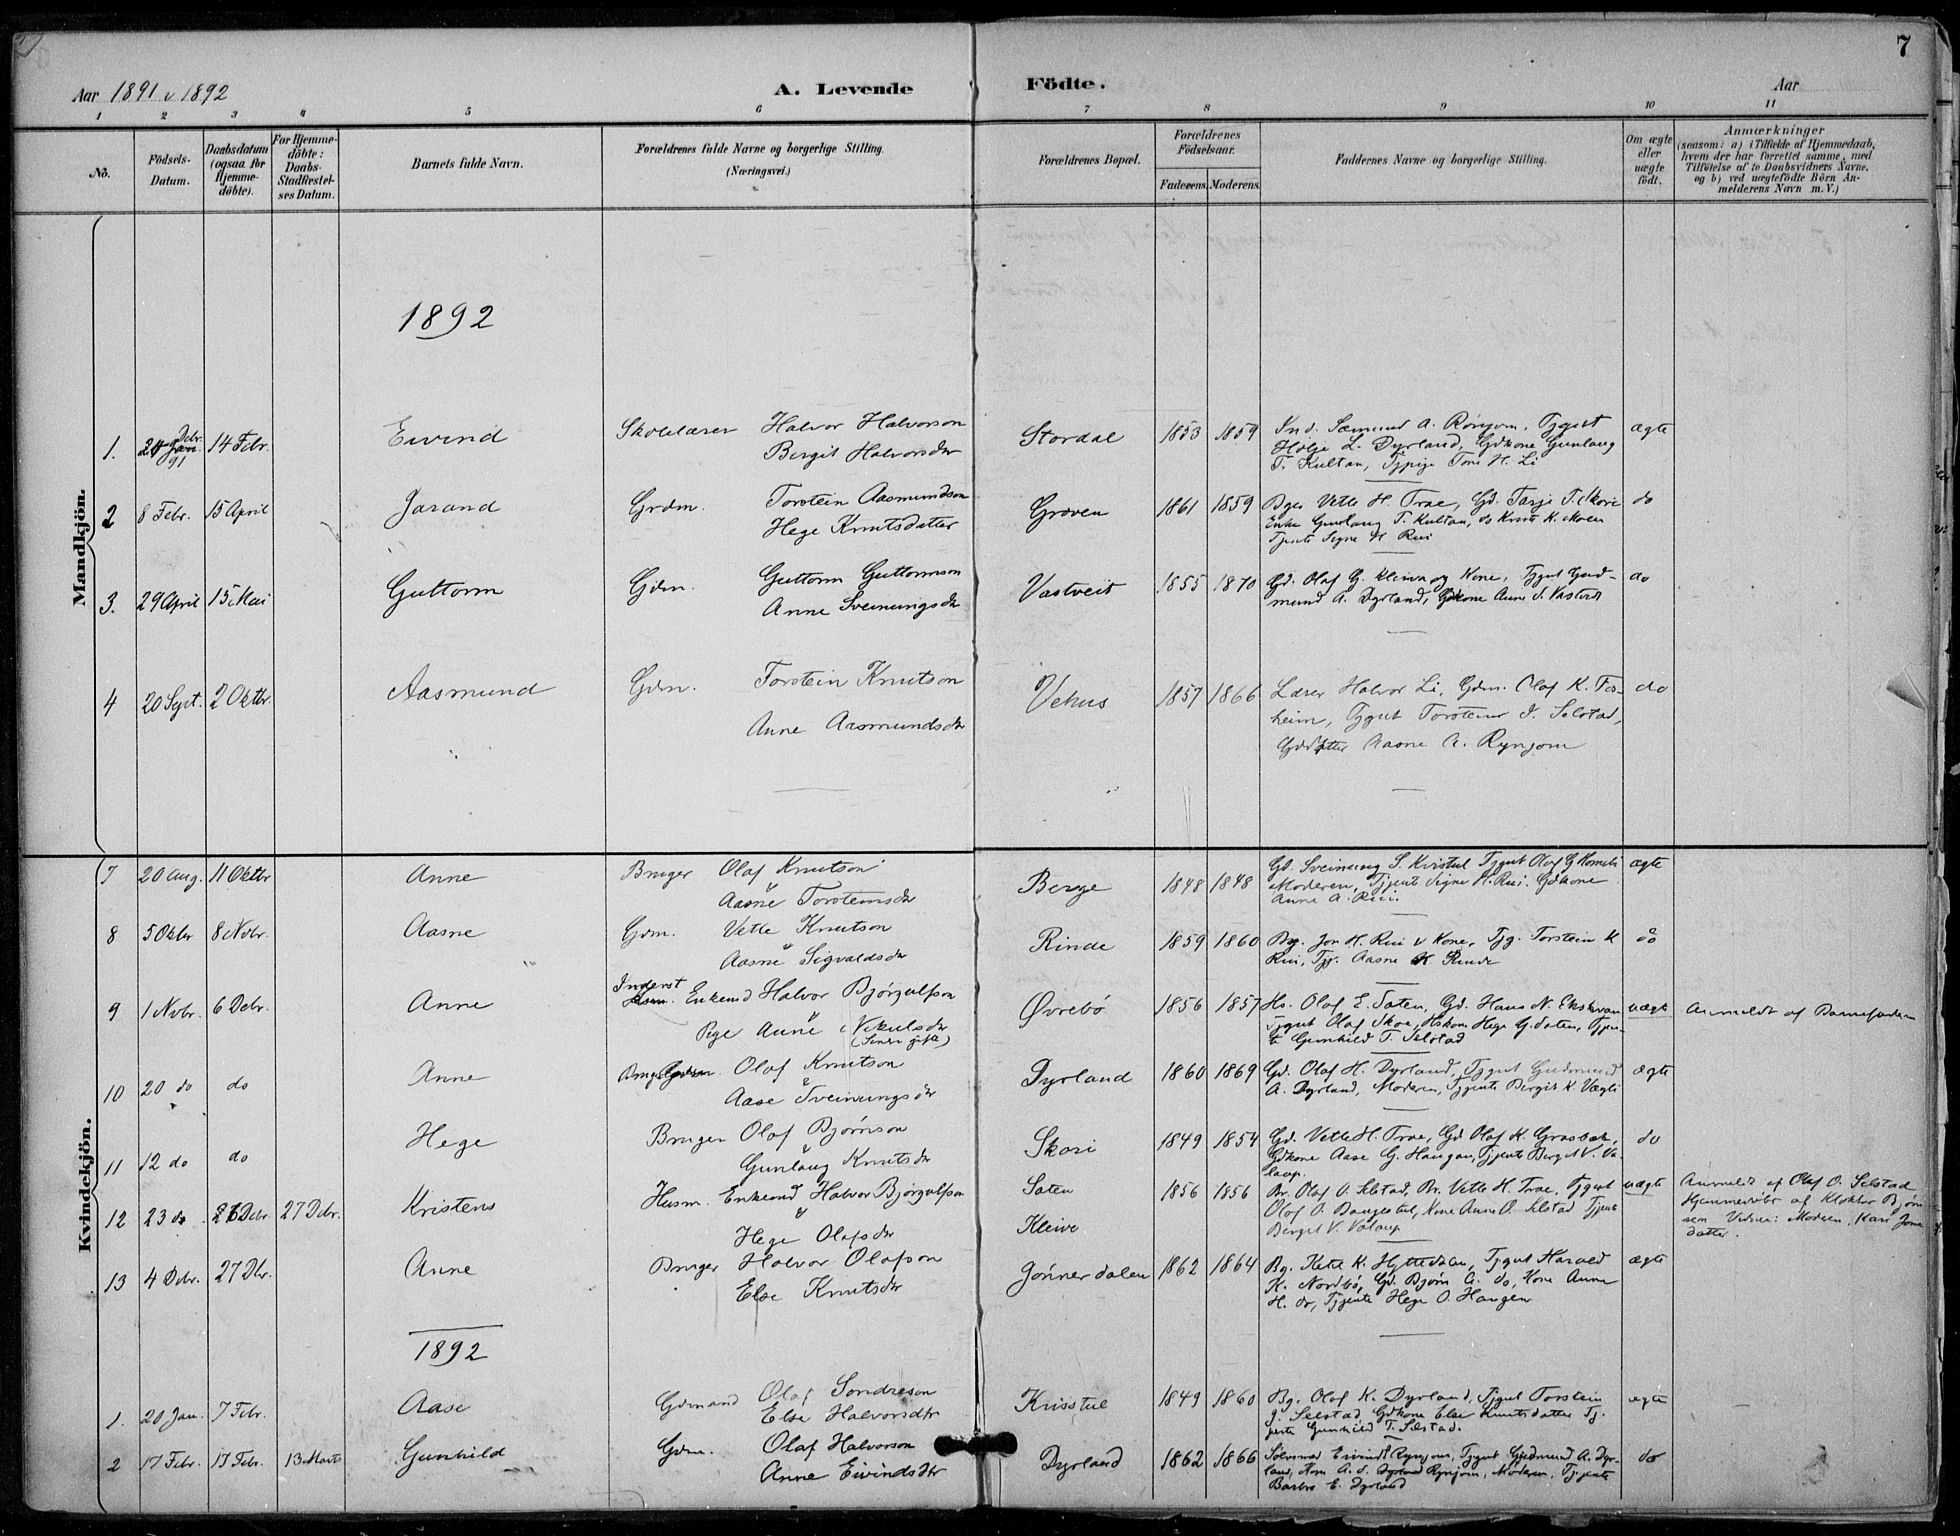 7
Aar 1891 v 1892
A. Levende Födte.
Aar
1 2 3 4 5 6 7 8 9 10 11
No.
Födsels-
Datum.
Daabsdatum
(ogsaa for
Hjemme-
döbte).
For Hjemme-
döbte:
Daabs-
Stadfestel-
ses Datum.
Barnets fulde Navn.
Forældrenes fulde Navne og borgerlige Stilling.
(Næringsvei.)
Forældrenes Bopæl.
Forældrenes
Födselsaar.
Faderens. Moderens.
Faddernes Navne og borgerlige Stilling.
Om ægte
eller
uægte
født.
Anmærkninger
(saasom: a) i Tilfælde af Hjemmedaab,
hvem der har forrettet samme, med
Tilföielse af to Daabsvidners Navne,
og b) ved uægtefödte Börn An-
melderens Navn m. V.)
Mandkjön.
1892
1. 24 Debr. 91 14 Febr. Eivind Skolelærer Halvor Halvorson
Bergit Halvorsdtr
Stordal 1853 1859 Ind. Sæmund A. Rønjom, Tjgut
Helge L. Dyrland, Gdkone Gunlaug
T. Kultan, Tjpige Tone H. Li
ægte
2 8 Febr. 15 April Jarand Grdm. Torstein Aasmundson
Hege Knutsdatter
Groven 1861 1859 Bger Vetle H. Trae, Gd. Tarje T. Skori
Enke Gunlaug T. Kultan, do Knut K. Moen
Tjente Signe H Rui
do
3. 29 April 15 Mai Guttorm Gdm. Guttorm Guttormson
Anne Sveinungsdtr
Vastveit 1855 1870 Gd. Olaf G. Kleiva og Kone, Tjgut Gud-
mund A. Dyrland, Gdkone Anne S. Vastveit
do
4 20 Sept. 2 Oktbr. Aasmund Gdm. Torstein Knutson
Anne Aasmundsdtr
Vehus 1857 1866 Lærer Halvor Li, Gdm. Olaf K. Tor-
heim, Tjgut Torstein J. Selstad,
Gddatter Aasne A. Rynjom
do
Kvindekjön.
7 20 Aug. 11 Oktbr Anne Bruger Olaf Knutson
Aasne Torsteinsdtr
Berge 1848 1848 Gd. Sveinung S. Kvistul Tjgut Olaf G
Moderen, Tjente Signe H. Rui. Gdkone
Anne A. Rui.
ægte
8 5 Oktbr 8 Novbr. Aasne Gdm. Vetle Knutson
Aasne Sigvaldsdtr
Rinde 1859 1860 Bg. Jon H. Rui v Kone, Tjg. Torstein K
Rui, Tjp. Aasne K. Rinde
do
9 1 Nvbr. 6 Debr. Anne Inderst Enkemd Halvor Bjørgulfson
Pige Anne Nikulsdtr
(Senere gift)
Øvrebø 1856 1857 Hs. Olaf E. Saten, Gd. Hans N.
Tjgut Olaf Skoe, Hskone Hege G. Saten, Tjen-
te Gunhild T. Selstad
uægte Anmeldt af Barnefaderen
10 20 do do Anne Bruger Olaf Knutson
Aase Sveinungsdtr
Dyrland 1860 1869 Gd. Olaf H. Dyrland, Tjgut Gudmund
A. Dyrland, Moderen, Tjente Bergit K. Vægli
ægte
11 12 do do Hege Bruger Olaf Bjørnson
Gunlaug Knutsdtr
Skori 1849 1854 Gd. Vetle H. Trae, Gd Olaf K. Grasbak,
Gdkone Aase G. Haugan, Tjente Bergit V. Va-
laup.
do
12 23 do 26 Debr. 27 Debr. Kristens Husm. Enkemd Halvor Bjørgulfson
Hege Olafsdtr
Saten
Kleive
1856 1856 Br. Olaf O. Selstad, Br. Vetle H. Trae, Tjgut
Olaf O. Bangestul, Kone Anne O. Selstad Tjente
Bergit V. Valaup
uægte Anmeldt af Olaf O. Selstad
Hjemmedøbt af Klokker Bjørn
sen Vidner: Moderen, Kari Jons
datter.
13 4 Debr. 27 Dbr. Anne Bruger Halvor Olafson
Else Knutsdtr
Gønnerdalen 1862 1864 Bg. Ketil K. Hyttedalen, Tjgut Harald
K. Nordbø, Gd. Bjørn A. do, Kone Anne
H. do, Tjente Hege O. Haugen
ægte
1892
1. 20 Jan. 7 Febr. Aase Gdmand Olaf Sondreson
Else Halvorsdtr
Krisstul 1849 1860 Bg. Olaf K. Dyrland, Tjgut Torstein
J. Selstad Gdkone Else Knutsdatter Tj-
jente Gunhild T. Selstad.
ægte
2 17 Febr. 17 Febr. 13 Marts Gunhild Gdm. Olaf Halvorson
Anne Eivindsdtr
Dyrland 1862 1866 Eivind Rynjom, Tjgut Gudmund A. Dyr-
land, Kone A. S. Rynjom, Moderen, Tjente
Barbro E. Dyrland
do